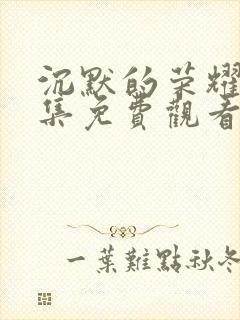 沉默的荣耀
集免費觀看
一葉難點秋冬